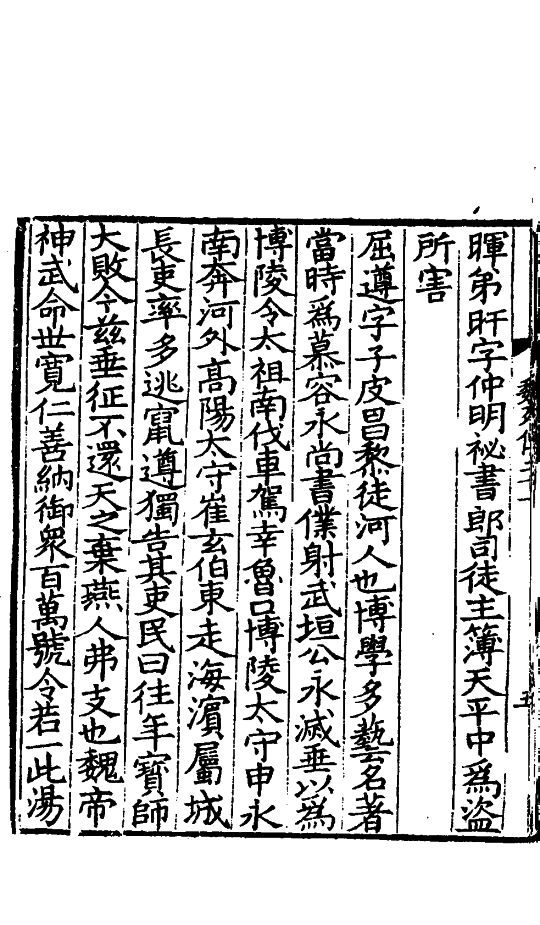 暉弟旰字仲明祕書郎司徒主簿天平中爲盜
所害
屈遵字子皮昌黎徒河人也博學多藝名著
當時爲慕容永尚書僕射武垣公永滅垂以爲
博陵令太祖南伐車駕幸魯口博陵太守申永
南奔河外高陽太守崔玄伯東走海濱屬城
長吏率多逃竄遵獨告其吏民曰往年寳師
大敗今茲垂征不還天之棄燕人弗支也魏帝
神武命世寬仁善納御衆百萬號令若一此湯